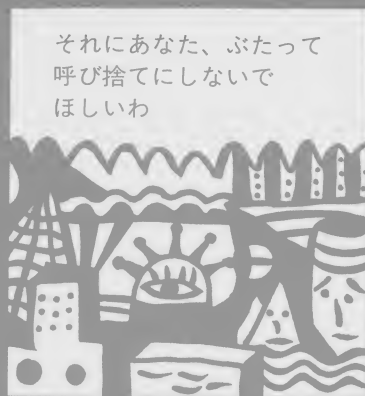 それにあなた、ぶたって
呼び捨てにしないで
ほしいわ